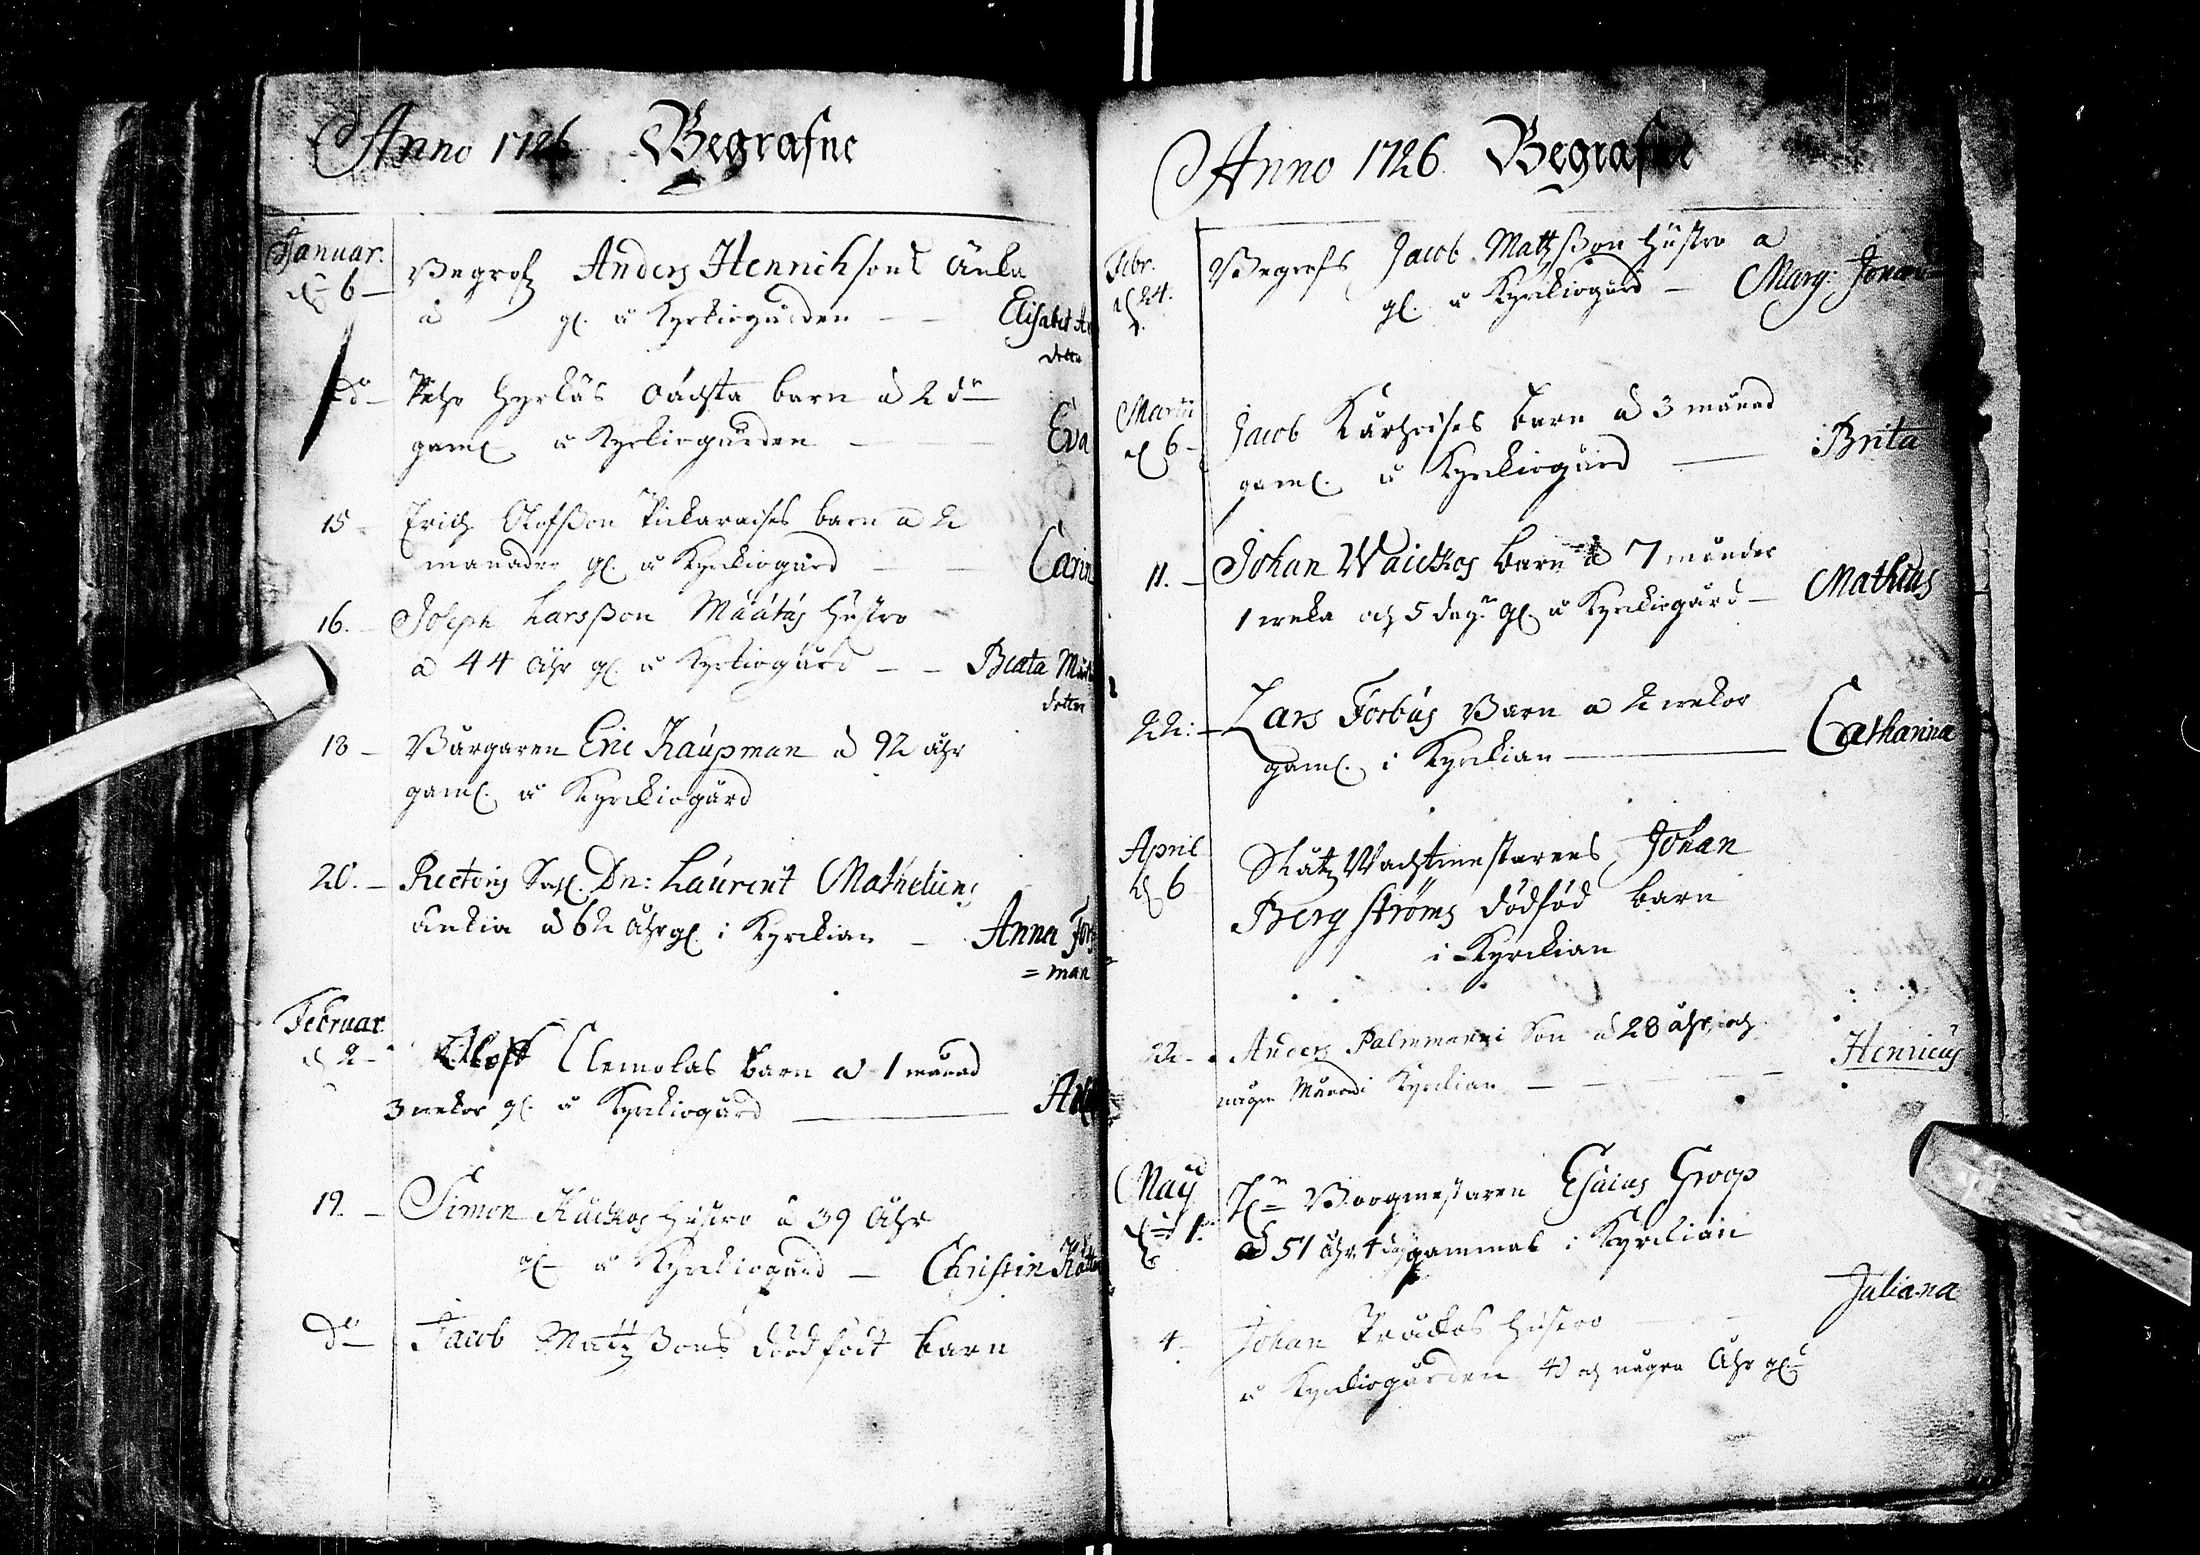 Anno 1726 Begrafne
Januar.
d. 6 — Begrofz Anders Henrichsons Änka
à gl. å Kyrkiogården — — Elisabet An
dotter
do — Petr Hyrkäs oächta barn à 2 dn
gaml. å Kyrkiogården — — Eva
15 — Erich Olofsson barn à 2
månader gl. å Kyrkiogård — — Carin
16. — Joseph Larsson Määtäs hustro
à 44 åhr gl. å Kyrkiogård — — Beata
dotter
18 — Borgaren Eric Kaupman à 92 åhr
gaml. å Kyrkiogård
20. — Rectoris Sahl. Dn: Laurent Mathelii
änkia à 62 åhr gl. i Kyrckian — Anna For
= man
Februar.
d. 2 — Clemolas barn à 1 månad
3 wekor gl. å Kyrkiogård —
19. — Simon hustro à 39 åhr
gl. å Kyrkiogård — Christin
do — Jacob Mattzsons dödfödt barn
Anno 1726. Begrafne
Febr.
d. 24. Begrofs Jacob Mattzsson hustro à
gl. å Kyrkiogård — Marg:
Martii
d. 6 — Jacob barn à 3 månad
gaml. å Kyrkiogård — Brita
11. — Johan Waickos barn à 7 månder
1 weka och 5 dagr gl. å Kyrkiogård — Mathias
22: — Lars Forbus Barn à 2 wekor
gaml. i Kyrckian — Catharina
April
d. 6 Wachtmestarens Johan
Bergströms dödföd barn
i Kyrckian
22 — Anders Son à 28 åhr, och
någre Månad i Kyrckian — — — Henricus
May
d. 1. Hn Borgmestaren Esaias Groop
à 51 åhr 4 dag gammal i Kyrckian
Juliana
4 — Johan Präckos hustro
å Kyrkiogården 40 och några åhr gl.